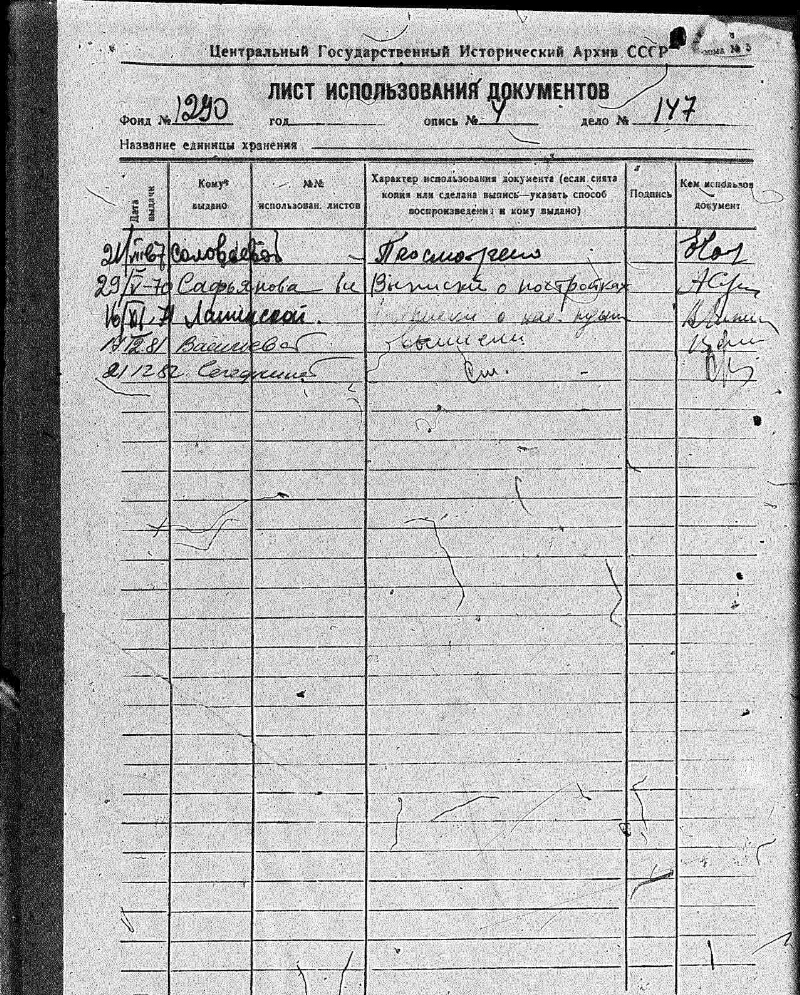 Центральный Государственный Исторический Архив СССР
№ 3
ЛИСТ ИСПОЛЬЗОВАНИЯ ДОКУМЕНТОВ
Фонд № 1290 год опись № 4 дело № 147
Название единицы хранения
Дата выдачи
Кому выдано
№№ использован. листов
Характер использования документа (если снята
копия или сделана выпись—указать способ
воспроизведения и кому выдано)
Подпись
Кем использов
документ
21/VII-67 Соловьевой – Просмотрено
29/V-70 Сафьянова Выписки о постройках
16/XI.71 о нас.
17.12.81 Васильевой выписки
21 12 82 См. –